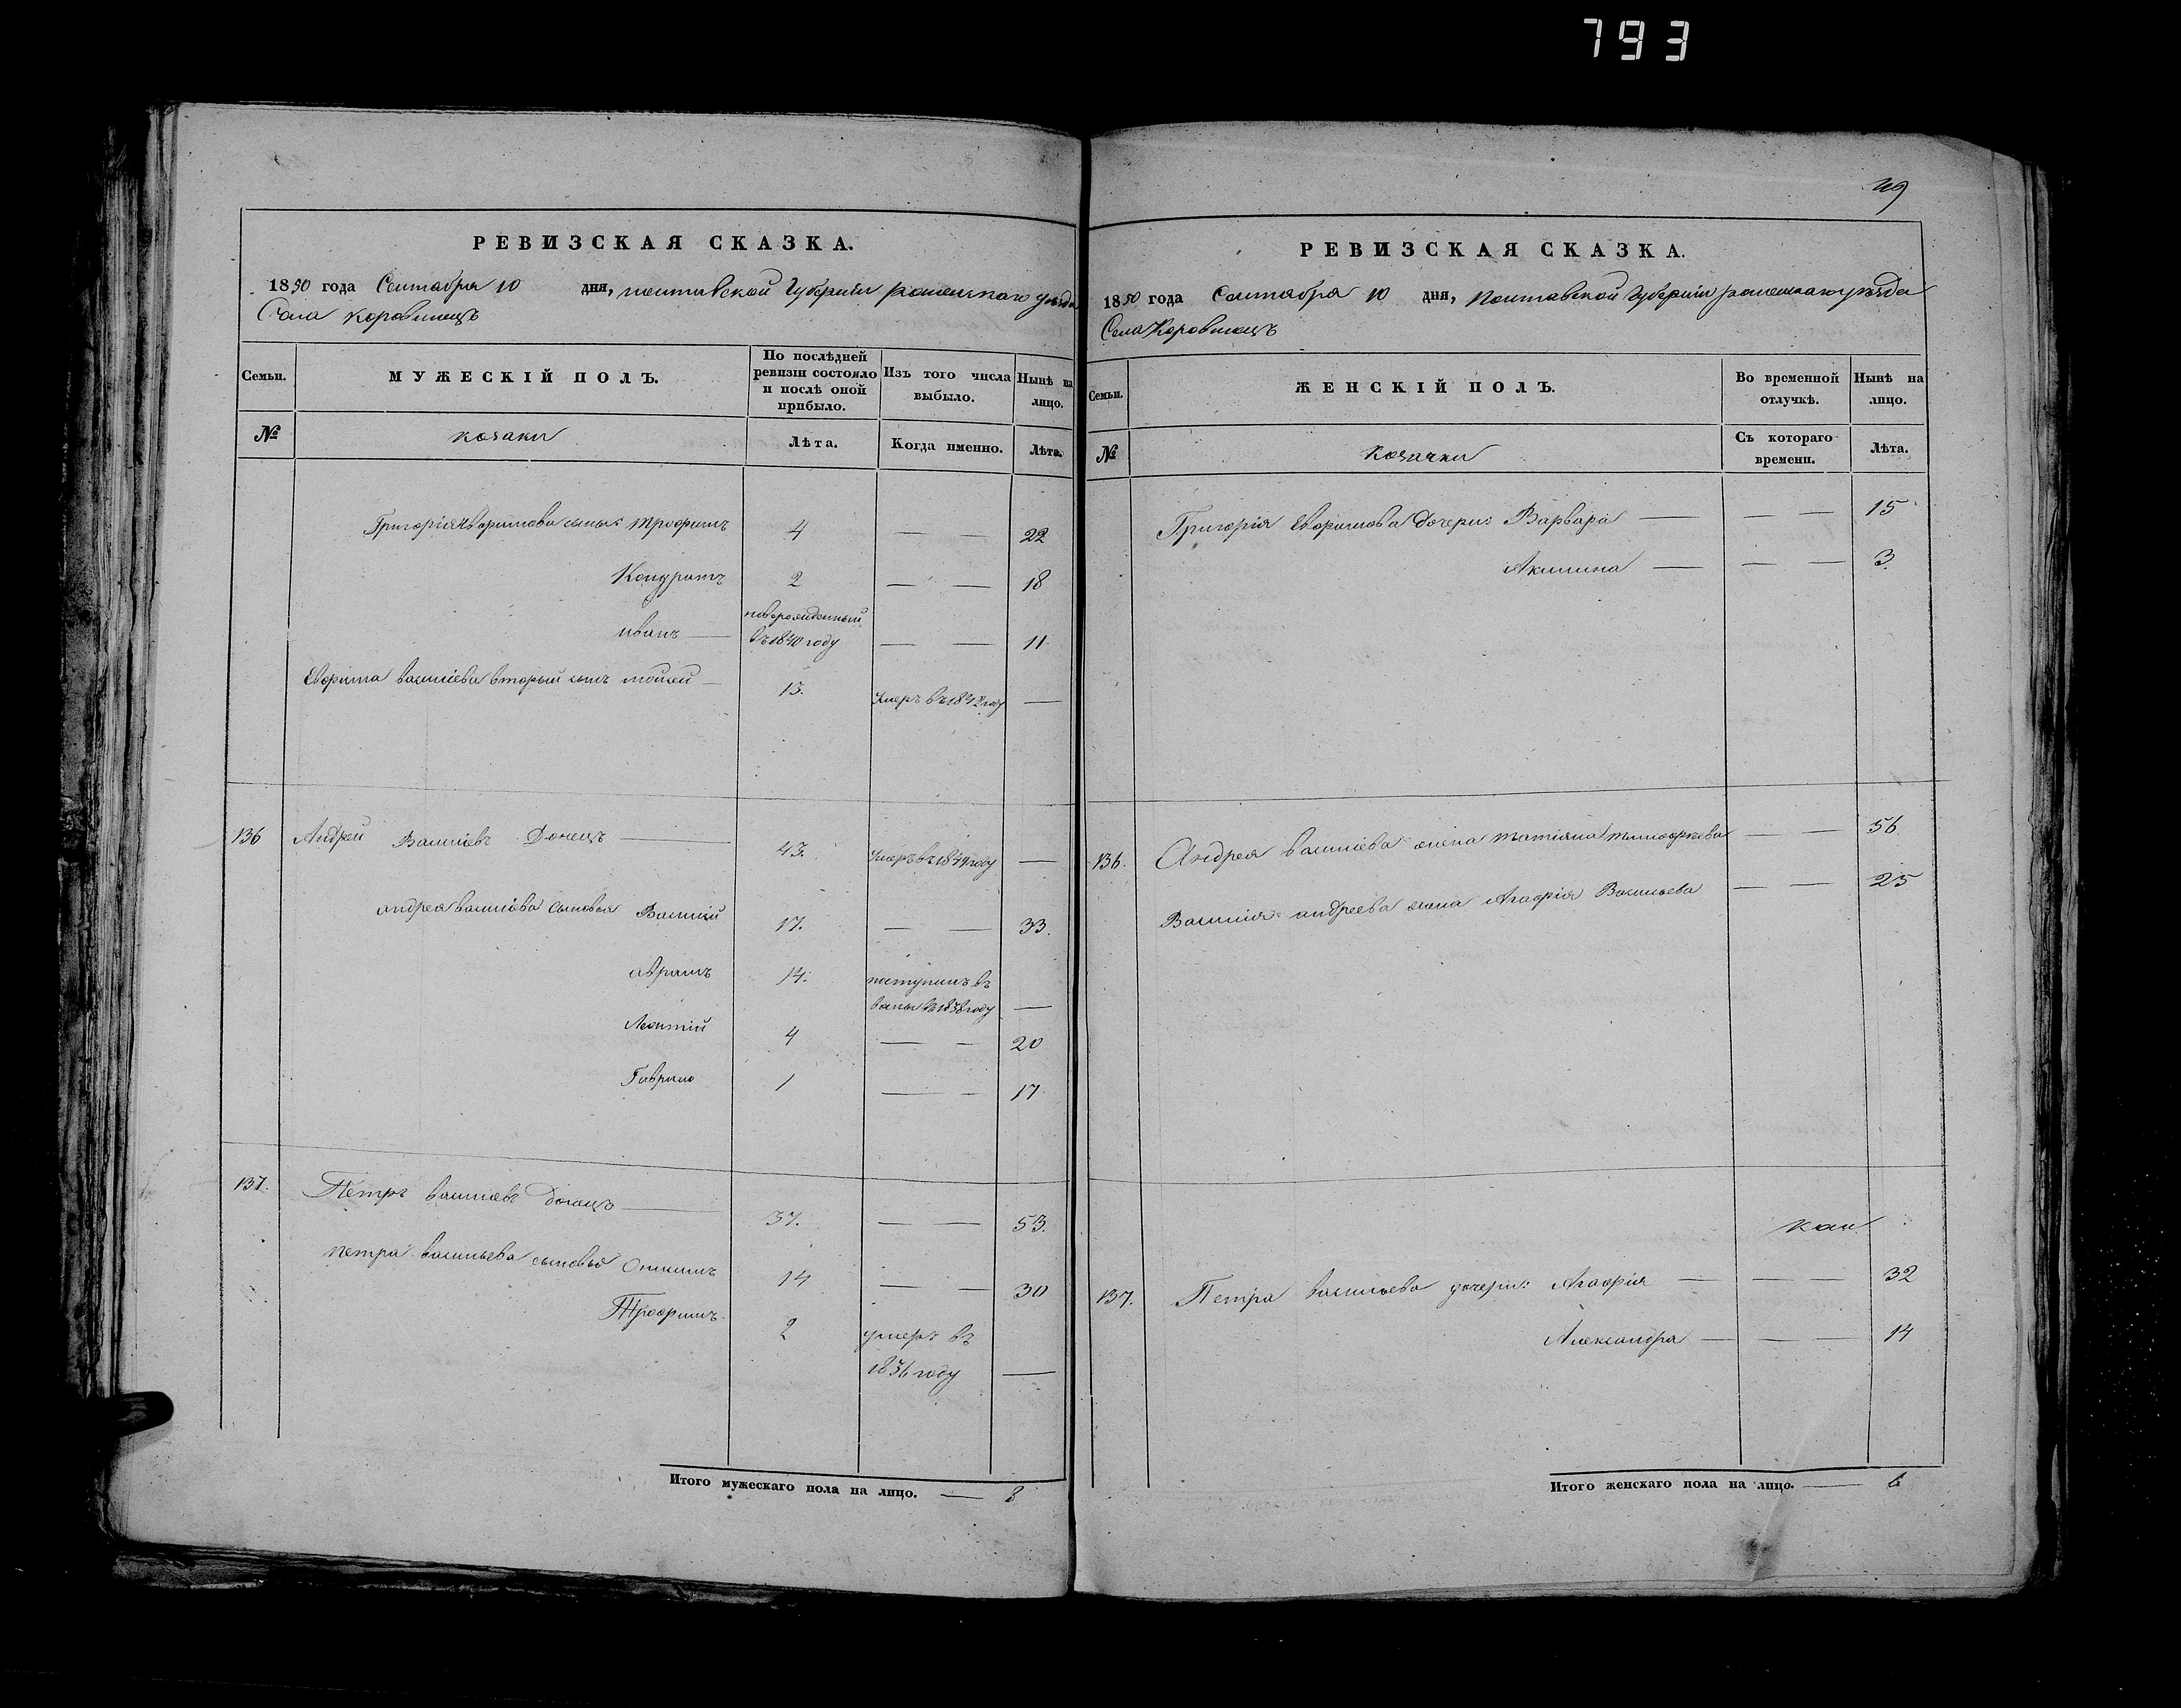 793
РЕВИЗСКАЯ СКАЗКА.
1850 года Сентября 10 дня, полтавской Губернии роменскаго уезда
Села коровинецъ
Семьи. МУЖЕСКІЙ ПОЛЪ. По послѣдней ревизіи состояло и послѣ оной прибыло. Изъ того числа выбыло. Нынѣ на лицо.
№ козаки Лѣта. Когда именно. Лѣта.
Григорія Ефримова сынья Трофимъ 4 — — 22
Кондратъ 2 — — 18
иванъ — новорожденный
въ 1840 году — — 11
Ефрима василіева вторый сынъ — 13. Умеръ въ 1842 году —
136 Андрей Василіевъ Донецъ — 43. умеръ въ 1844 году —
андрея василіева сыновья Василій 17. — — 33.
аврамъ 14. поступилъ въ
въ 1838 году —
Леонтій 4 — — 20
Гаврило 1 — — 17
137. Петръ василіевъ донецъ — 37. — — 53.
петра васильева сыновья Онисимъ 14 — — 30
Трофимъ 2 умеръ въ
1836 году —
Итого мужескаго пола на лицо. — 8
49
РЕВИЗСКАЯ СКАЗКА.
1850 года Сентября 10 дня, Полтавской Губернии роменскаго уезда
Села Коровинецъ
Семьи. ЖЕНСКІЙ ПОЛЪ. Во временной отлучкѣ. Нынѣ на лицо.
№ козачки Съ котораго времени. Лѣта.
Григорія Ефримова дочери: Варвара — — — 15
Акилина — — — 3.
136. Андрея василіева жена татіяна тимофеева — — 56
Василія андреева жена Агафія Васильева — — 25
137. Петра васильева дочери: Агафія — — — 32
Александра — — — 14
Итого женскаго пола на лицо. — 6